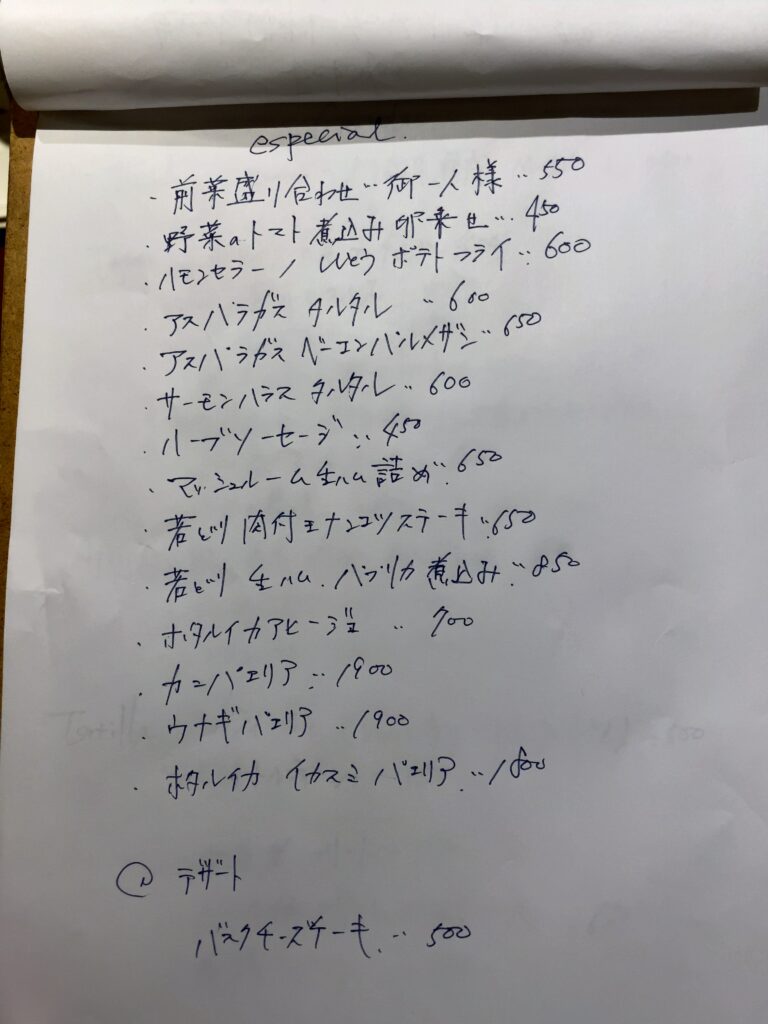 especial.
・前菜盛り合わせ‥御一人様‥550
・野菜のトマト煮込み卵乗せ‥450
・ハモンセラーノ ポテトフライ‥600
・アスパラガス タルタル ‥600
・アスパラガス ベーコンパルメザン‥650
・サーモンハラス タルタル‥600
・ハーブソーセージ‥450
・マッシュルーム生ハム詰め‥650
・若どり 肉付きナンコツステーキ‥650
・若どり 生ハム、パプリカ煮込み‥850
・ホタルイカアヒージョ ‥ 700
・カニパエリア‥1900
・ウナギパエリア ‥1900
・ホタルイカ イカスミ パエリア‥1800
デザート
バスクチーズケーキ‥ 500